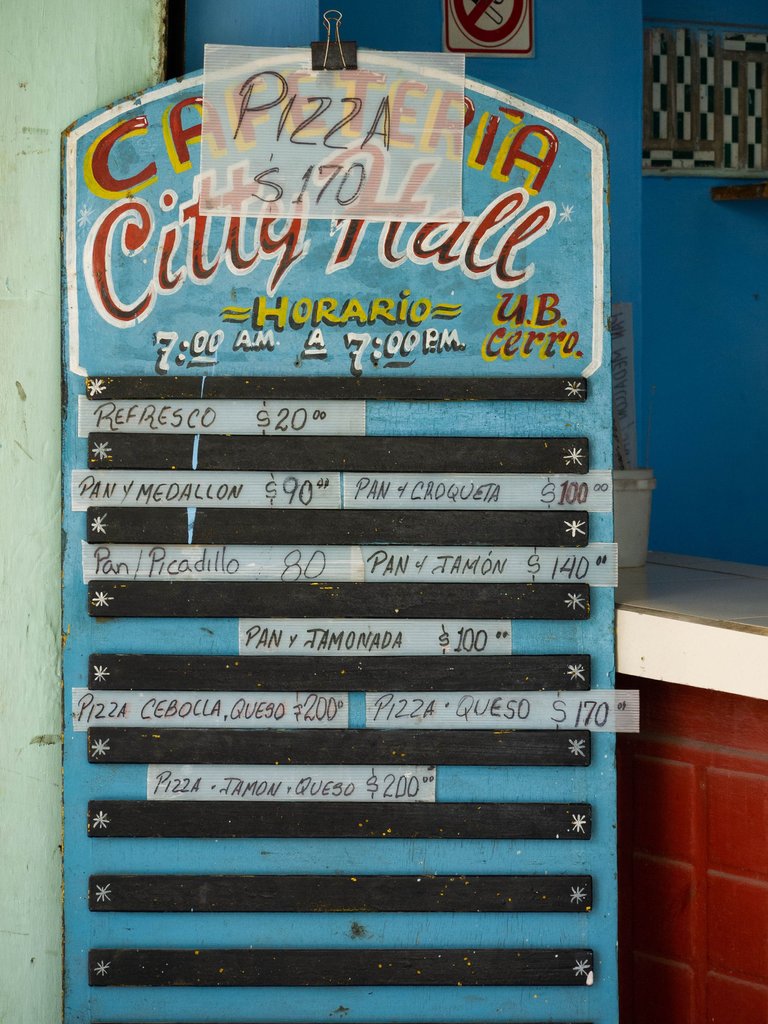 PIZZA
$170
CAFETERÍA
Citty Hall
=HORARIO=
7:00 A.M. A 7:00 P.M.
U.B.
Cerro.
REFRESCO $20⁰⁰
PAN Y MEDALLON $90⁰⁰
PAN Y CROQUETA $100⁰⁰
Pan/Picadillo 80
PAN Y JAMÓN $140⁰⁰
PAN Y JAMONADA $100⁰⁰
PIZZA CEBOLLA, QUESO $200⁰
PIZZA · QUESO $170⁰⁰
PIZZA · JAMON · QUESO $200⁰⁰
PAN MEDALLON